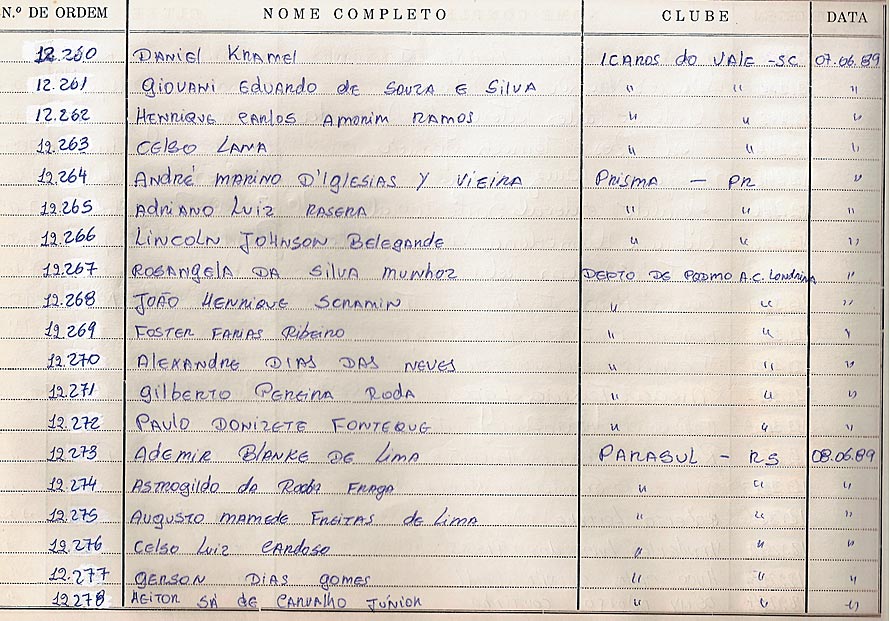 N.º DE ORDEM NOME COMPLETO CLUBE DATA
12.260 DANIEL KRAMEL ICAROS do VALE - SC 07.06.89
12.261 GIOVANI EDUARDO DE SOUZA E SILVA " " "
12.262 HENRIQUE CARLOS AMORIM RAMOS " " "
12.263 CELSO LANA " " "
12.264 ANDRÉ MARINO D'IGLESIAS Y VIEIRA PRISMA - PR "
12.265 ADRIANO LUIZ RASERA " " "
12.266 LINCOLN JOHNSON BELEGANDE " " "
12.267 ROSANGELA DA SILVA MUNHOZ DEPTO DE PQDMO A.C. Londrina "
12.268 JOÃO HENRIQUE SCRAMIN " " "
12.269 FOSTER FARIAS RIBEIRO " " "
12.270 ALEXANDRE DIAS DAS NEVES " " "
12.271 GILBERTO PEREIRA RODA " " "
12.272 PAULO DONIZETE FONTEQUE " " "
12.273 ADEMIR BLANKE DE LIMA PARASUL - RS 08.06.89
12.274 ASTROGILDO da Rocha FRAGA " " "
12.275 AUGUSTO MAMEDE FREITAS de LIMA " " "
12.276 CELSO LUIZ CARDOSO " " "
12.277 GERSON DIAS GOMES " " "
12.278 HEITOR SÁ DE CARVALHO JÚNIOR " " "